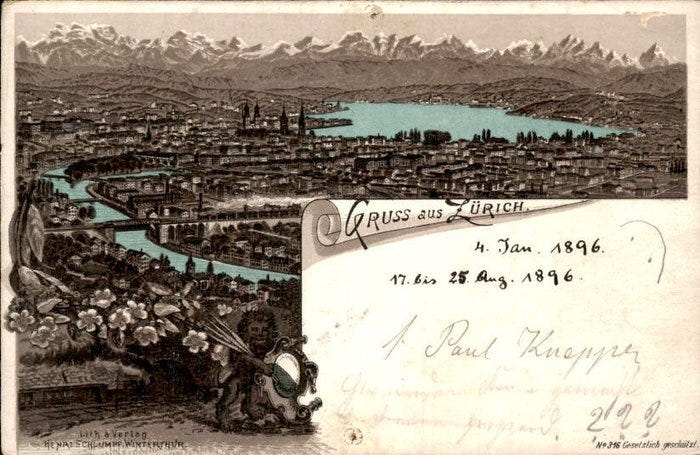 GRUSS aus ZÜRICH.
4. Jan. 1896.
17. bis 25. Aug. 1896.
Paul Knapper
222
Lith. & Verlag
HENRI SCHLUMPF, WINTERTHUR.
No 316 Gesetzlich geschützt.